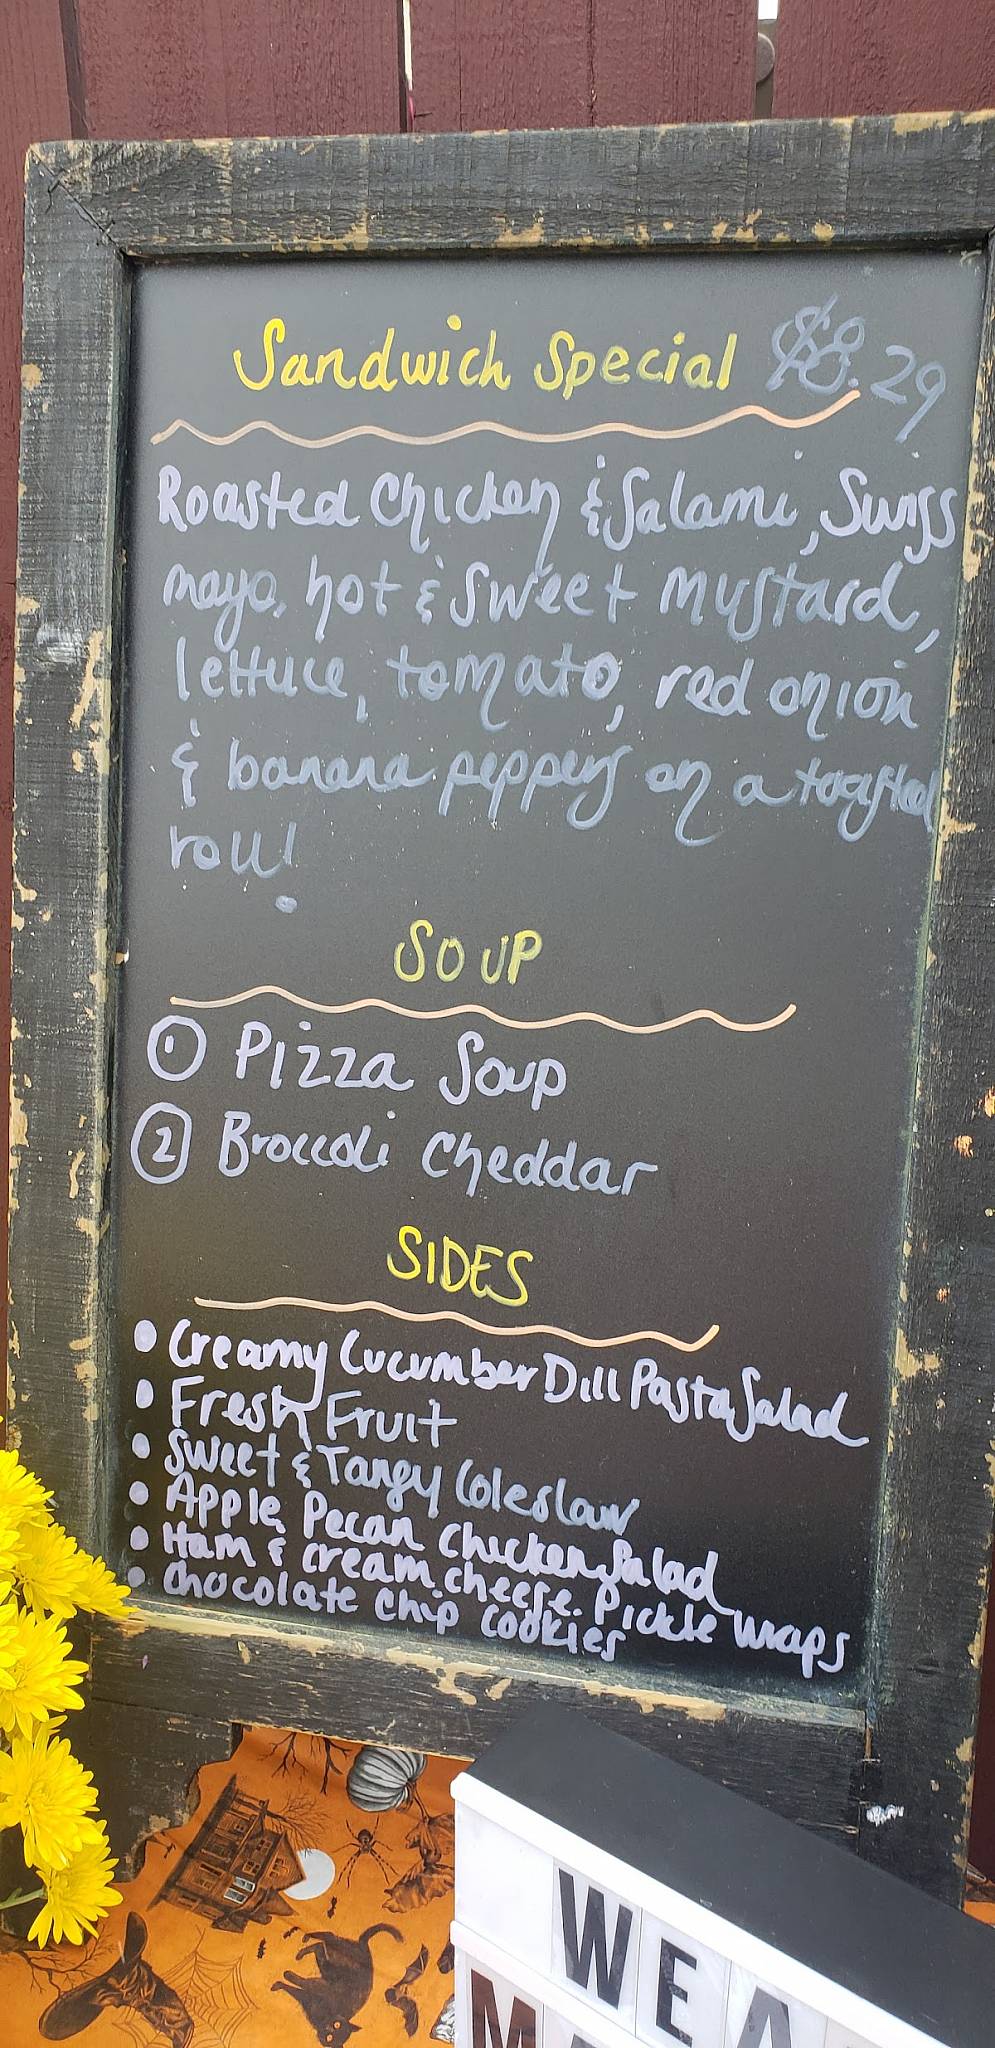 Sandwich Special $8.29
Roasted Chicken & Salami, Swiss
mayo, hot & sweet mustard,
lettuce, tomato, red onion
& banana peppers on a toasted
roll!
SOUP
1 Pizza Soup
2 Broccoli Cheddar
SIDES
• Creamy Cucumber Dill Pasta Salad
• Fresh Fruit
• Sweet & Tangy Coleslaw
• Apple Pecan Chicken Salad
• Ham & cream cheese Pickle wraps
• chocolate chip cookies
WEA